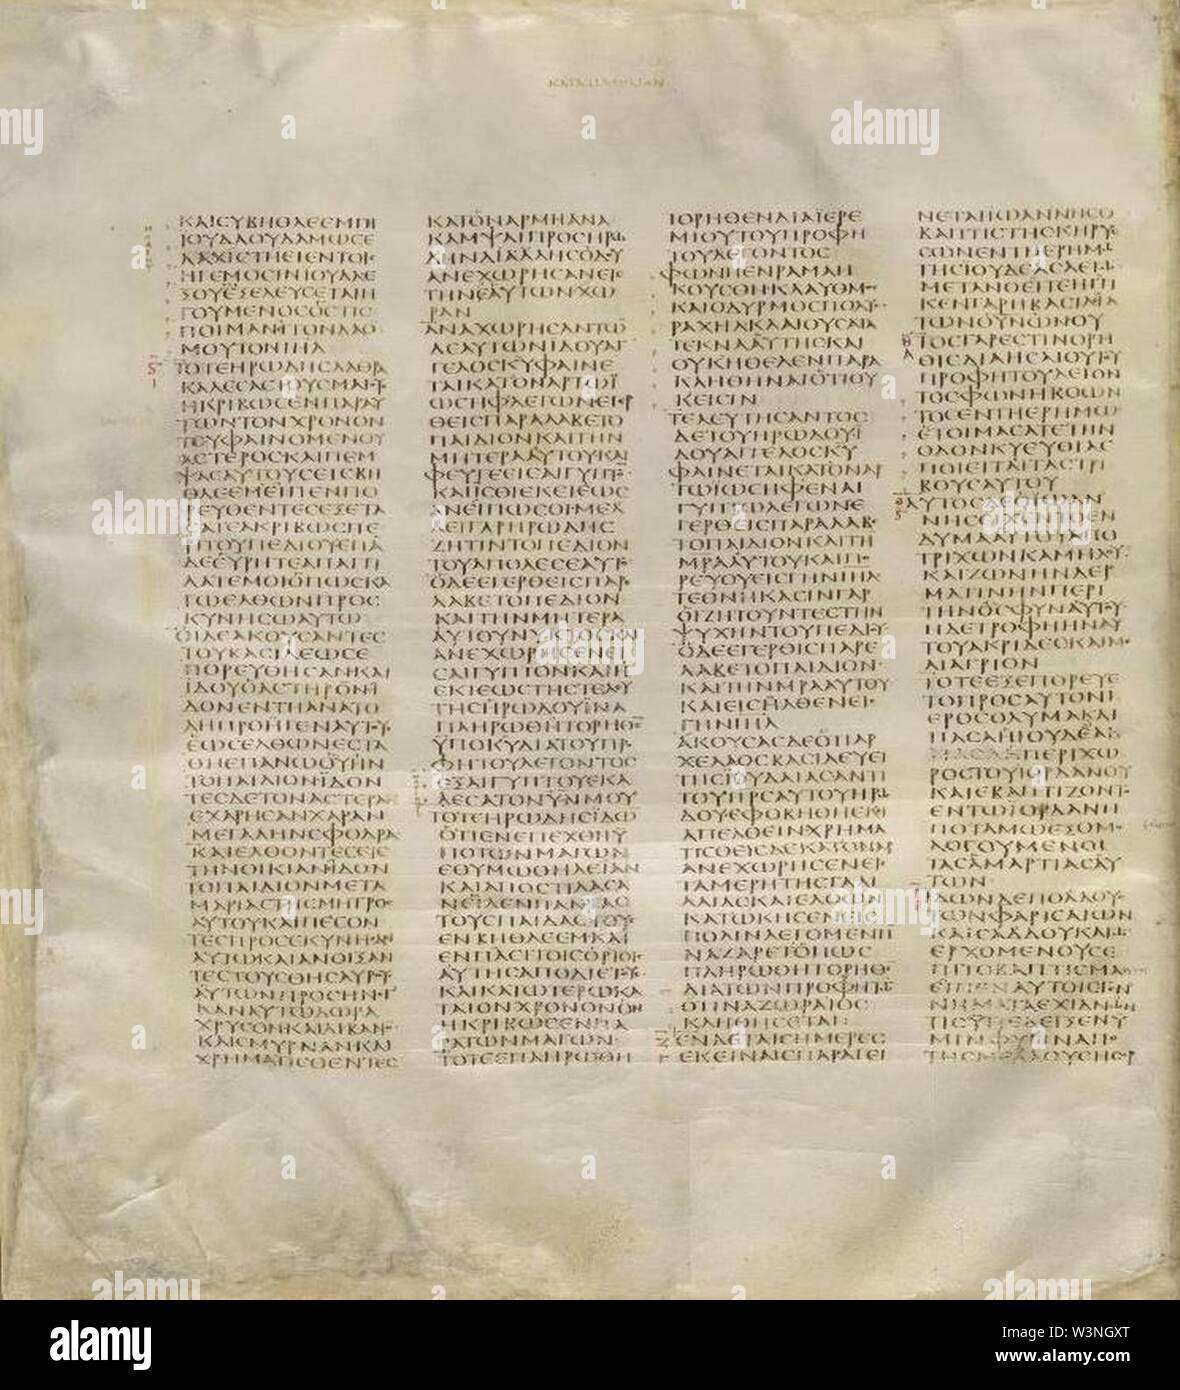 ΚΑΤΑ ΜΑΘΘΑΙΟΝ
ΚΑΙϹΥΒΗΘΛΕΕΜΓΗ
ΙΟΥΔΑΟΥΔΑΜΩϹΕ
ΛΑΧΙϹΤΗΕΙΕΝΤΟΙϹ
ΗΓΕΜΟϹΙΝΙΟΥΔΑΕΚ
ϹΟΥΕΞΕΛΕΥϹΕΤΑΙΗ
ΓΟΥΜΕΝΟϹΟϹΤΙϹ
ΠΟΙΜΑΝΙΤΟΝΛΑΟ
ΜΟΥΤΟΝΙΗΛ
ΤΟΤΕΗΡΩΔΗϹΛΑΘΡΑ
ΚΑΛΕϹΑϹΤΟΥϹΜΑΓΟΥϹ
ΗΚΡΙΒΩϹΕΝΠΑΡΑΥ
ΤΩΝΤΟΝΧΡΟΝΟΝ
ΤΟΥΦΑΙΝΟΜΕΝΟΥ
ΑϹΤΕΡΟϹΚΑΙΠΕΜ
ΨΑϹΑΥΤΟΥϹΕΙϹΒΗ
ΘΛΕΕΜΕΙΠΕΝΠΟ
ΡΕΥΘΕΝΤΕϹΕΞΕΤΑ
ϹΑΤΕΑΚΡΙΒΩϹΠΕ
ΡΙΤΟΥΠΕΔΙΟΥΕΠΑ
ΔΕΕΥΡΗΤΕΑΠΑΓΓΙ
ΛΑΤΕΜΟΙΟΠΩϹΚΑ
ΓΩΕΛΘΩΝΠΡΟϹ
ΚΥΝΗϹΩΑΥΤΩ
ΟΙΔΕΑΚΟΥϹΑΝΤΕϹ
ΤΟΥΒΑϹΙΛΕΩϹΕ
ΠΟΡΕΥΘΗϹΑΝΚΑΙ
ΙΔΟΥΟΑϹΤΗΡΟΝΙ
ΔΟΝΕΝΤΗΑΝΑΤΟ
ΛΗΠΡΟΗΓΕΝΑΥΤΟΥϹ
ΕΩϹΕΛΘΩΝΕϹΤΑ
ΘΗΕΠΑΝΩΟΥΗΝ
ΤΟΠΑΙΔΙΟΝΪΔΟΝ
ΤΕϹΔΕΤΟΝΑϹΤΕΡΑ
ΕΧΑΡΗϹΑΝΧΑΡΑΝ
ΜΕΓΑΛΗΝϹΦΟΔΡΑ
ΚΑΙΕΛΘΟΝΤΕϹΕΙϹ
ΤΗΝΟΙΚΙΑΝΪΔΟΝ
ΤΟΠΑΙΔΙΟΝΜΕΤΑ
ΜΑΡΙΑϹΤΗϹΜΗΤΡΟϹ
ΑΥΤΟΥΚΑΙΠΕϹΟΝ
ΤΕϹΠΡΟϹΕΚΥΝΗϹΑΝ
ΑΥΤΩΚΑΙΑΝΟΙΞΑΝ
ΤΕϹΤΟΥϹΘΗϹΑΥΡΟΥϹ
ΑΥΤΩΝΠΡΟϹΗΝΕΓ
ΚΑΝΑΥΤΩΔΩΡΑ
ΧΡΥϹΟΝΚΑΙΛΙΒΑΝΟΝ
ΚΑΙϹΜΥΡΝΑΝΚΑΙ
ΧΡΗΜΑΤΙϹΘΕΝΤΕϹ
ΚΑΤΟΝΑΡΜΗΑΝΑ
ΚΑΜΨΑΙΠΡΟϹΗΡΩ
ΔΗΝΔΙΑΛΛΗϹΟΔΟΥ
ΑΝΕΧΩΡΗϹΑΝΕΙϹ
ΤΗΝΕΑΥΤΩΝΧΩ
ΡΑΝ
ΑΝΑΧΩΡΗϹΑΝΤΩ
ΔΕΑΥΤΩΝΙΔΟΥΑΓ
ΓΕΛΟϹΚΥΦΑΙΝΕ
ΤΑΙΚΑΤΟΝΑΡΤΩΪ
ΩϹΗΦΛΕΓΩΝΕΓΕΡ
ΘΕΙϹΠΑΡΑΛΑΒΕΤΟ
ΠΑΙΔΙΟΝΚΑΙΤΗΝ
ΜΗΤΕΡΑΑΥΤΟΥΚΑΙ
ΦΕΥΓΕΕΙϹΑΙΓΥΠΤΟΝ
ΚΑΙΙϹΘΙΕΚΕΙΕΩϹ
ΑΝΕΙΠΩϹΟΙΜΕΛ
ΛΕΙΓΑΡΗΡΩΔΗϹ
ΖΗΤΙΝΤΟΠΕΔΙΟΝ
ΤΟΥΑΠΟΛΕϹΕΑΥΤΟ
ΟΔΕΕΓΕΡΘΕΙϹΠΑΡΕ
ΛΑΒΕΤΟΠΕΔΙΟΝ
ΚΑΙΤΗΝΜΗΤΕΡΑ
ΑΥΤΟΥΝΥΚΤΟϹΚΑΙ
ΑΝΕΧΩΡΗϹΕΝΕΙ
ϹΑΙΓΥΠΤΟΝΚΑΙΗ
ΕΚΙΕΩϹΤΗϹΤΕΛΕΥ
ΤΗϹΗΡΩΔΟΥΪΝΑ
ΠΛΗΡΩΘΗΤΟΡΗΘΕ
ΫΠΟΚΥΔΙΑΤΟΥΠΡΟ
ΦΗΤΟΥΛΕΓΟΝΤΟϹ
ΕΞΑΙΓΥΠΤΟΥΕΚΑ
ΛΕϹΑΤΟΝΥΝΜΟΥ
ΤΟΤΕΗΡΩΔΗϹΪΔΩ
ΟΤΙΕΝΕΠΕΧΘΗΥ
ΠΟΤΩΝΜΑΓΩΝ
ΕΘΥΜΩΘΗΛΕΙΑΝ
ΚΑΙΑΠΟϹΤΙΛΑϹΑ
ΝΕΙΛΕΝΠΑΝΤΑϹ
ΤΟΥϹΠΑΙΔΑϹΤΟΥϹ
ΕΝΒΗΘΛΕΕΜΚΑΙ
ΕΝΠΑϹΙΤΟΙϹΟΡΙΟΙϹ
ΑΥΤΗϹΑΠΟΔΙΕΤΟΥϹ
ΚΑΙΚΑΤΩΤΕΡΩΚΑ
ΤΑΤΟΝΧΡΟΝΟΝΟΝ
ΗΚΡΙΒΩϹΕΝΠΑ
ΡΑΤΩΝΜΑΓΩΝ
ΤΟΤΕΕΠΛΗΡΩΘΗ
ΤΟΡΗΘΕΝΔΙΑΪΕΡΕ
ΜΙΟΥΤΟΥΠΡΟΦΗ
ΤΟΥΛΕΓΟΝΤΟϹ
ΦΩΝΗΕΝΡΑΜΑΗ
ΚΟΥϹΘΗΚΛΑΥΘΜΟϹ
ΚΑΙΟΔΥΡΜΟϹΠΟΛΥϹ
ΡΑΧΗΛΚΛΑΙΟΥϹΑΤΑ
ΤΕΚΝΑΑΥΤΗϹΚΑΙ
ΟΥΚΗΘΕΛΕΝΠΑΡΑ
ΚΛΗΘΗΝΑΙΟΤΙΟΥ
ΚΕΙϹΙΝ
ΤΕΛΕΥΤΗϹΑΝΤΟϹ
ΔΕΤΟΥΗΡΩΔΟΥΪ
ΔΟΥΑΓΓΕΛΟϹΚΥ
ΦΑΙΝΕΤΑΙΚΑΤΟΝΑΡ
ΤΩΪΩϹΗΦΕΝΑΙ
ΓΥΠΤΩΛΕΓΩΝΕ
ΓΕΡΘΕΙϹΠΑΡΑΛΑΒΕ
ΤΟΠΑΙΔΙΟΝΚΑΙΤΗ
ΜΡΑΑΥΤΟΥΚΑΙΠΟ
ΡΕΥΟΥΕΙϹΓΗΝΙΗΛ
ΤΕΘΝΗΚΑϹΙΝΓΑΡ
ΟΙΖΗΤΟΥΝΤΕϹΤΗΝ
ΨΥΧΗΝΤΟΥΠΕΔΙΟΥ
ΟΔΕΕΓΕΡΘΕΙϹΠΑΡΕ
ΛΑΒΕΤΟΠΑΙΔΙΟΝ
ΚΑΙΤΗΝΜΡΑΑΥΤΟΥ
ΚΑΙΕΙϹΗΛΘΕΝΕΙϹ
ΓΗΝΙΗΛ
ΑΚΟΥϹΑϹΔΕΟΤΙΑΡ
ΧΕΛΑΟϹΒΑϹΙΛΕΥΕΙ
ΤΗϹΙΟΥΔΑΙΑϹΑΝΤΙ
ΤΟΥΠΡϹΑΥΤΟΥΗΡΩ
ΔΟΥΕΦΟΒΗΘΗΕΚΙ
ΑΠΕΛΘΕΙΝΧΡΗΜΑ
ΤΙϹΘΕΙϹΔΕΚΑΤΟΝΑΡ
ΑΝΕΧΩΡΗϹΕΝΕΙϹ
ΤΑΜΕΡΗΤΗϹΓΑΛΙ
ΛΑΙΑϹΚΑΙΕΛΘΩΝ
ΚΑΤΩΚΗϹΕΝΕΙϹ
ΠΟΛΙΝΛΕΓΟΜΕΝΗ
ΝΑΖΑΡΕΤΟΠΩϹ
ΠΛΗΡΩΘΗΤΟΡΗΘΕΝ
ΔΙΑΤΩΝΠΡΟΦΗΤΩ
ΟΤΙΝΑΖΩΡΑΙΟϹ
ΚΛΗΘΗϹΕΤΑΙ
ΕΝΔΕΤΑΙϹΗΜΕΡΕϹ
ΕΚΕΙΝΑΙϹΠΑΡΑΓΕΙ
ΝΕΤΑΙΪΩΑΝΝΗϹΟ
ΒΑΠΤΙϹΤΗϹΚΗΡΥϹ
ϹΩΝΕΝΤΗΕΡΗΜΩ
ΤΗϹΙΟΥΔΕΑϹΛΕΓΩ
ΜΕΤΑΝΟΕΙΤΕΗΓΓΙ
ΚΕΝΓΑΡΗΒΑϹΙΛΙΑ
ΤΩΝΟΥΝΩΝΟΥ
ΤΟϹΓΑΡΕϹΤΙΝΟΡΗ
ΘΙϹΔΙΑΗϹΑΙΟΥΤΟΥ
ΠΡΟΦΗΤΟΥΛΕΓΟΝ
ΤΟϹΦΩΝΗΒΟΩΝ
ΤΟϹΕΝΤΗΕΡΗΜΩ
ΕΤΟΙΜΑϹΑΤΕΤΗΝ
ΟΔΟΝΚΥΕΥΘΙΑϹ
ΠΟΙΕΙΤΑΙΤΑϹΤΡΙ
ΒΟΥϹΑΥΤΟΥ
ΑΥΤΟϹΔΕΟΪΩΑΝ
ΝΗϹΕΙΧΕΝΤΟΕΝ
ΔΥΜΑΑΥΤΟΥΑΠΟ
ΤΡΙΧΩΝΚΑΜΗΛΟΥ
ΚΑΙΖΩΝΗΝΔΕΡ
ΜΑΤΙΝΗΝΠΕΡΙ
ΤΗΝΟϹΦΥΝΑΥΤΟΥ
ΗΔΕΤΡΟΦΗΗΝΑΥ
ΤΟΥΑΚΡΙΔΕϹΚΑΙΜΕ
ΛΙΑΓΡΙΟΝ
ΤΟΤΕΕΞΕΠΟΡΕΥΕ
ΤΟΠΡΟϹΑΥΤΟΝΪ
ΕΡΟϹΟΛΥΜΑΚΑΙ
ΠΑϹΑΗΙΟΥΔΕΑΚ
ΠΕΡΙΧΩ
ΡΟϹΤΟΥΙΟΡΔΑΝΟΥ
ΚΑΙΕΒΑΠΤΙΖΟΝΤΟ
ΕΝΤΩΪΟΡΔΑΝΗ
ΠΟΤΑΜΩΕΞΟΜΟ
ΛΟΓΟΥΜΕΝΟΙ
ΤΑϹΑΜΑΡΤΙΑϹΑΥ
ΤΩΝ
ΪΔΩΝΔΕΠΟΛΛΟΥϹ
ΤΩΝΦΑΡΙϹΑΙΩΝ
ΚΑΙϹΑΔΔΟΥΚΑΙΩ
ΕΡΧΟΜΕΝΟΥϹΕ
ΠΙΤΟΒΑΠΤΙϹΜΑ
ΕΙΠΕΝΑΥΤΟΙϹΓΕΝ
ΝΗΜΑΤΑΕΧΙΔΝΩΝ
ΤΙϹΥΠΕΔΕΙΞΕΝΥ
ΜΙΝΦΥΓΙΝΑΠΟ
ΤΗϹΜΕΛΛΟΥϹΗϹΟΡ
alamy
Image ID: W3NGXT
www.alamy.com